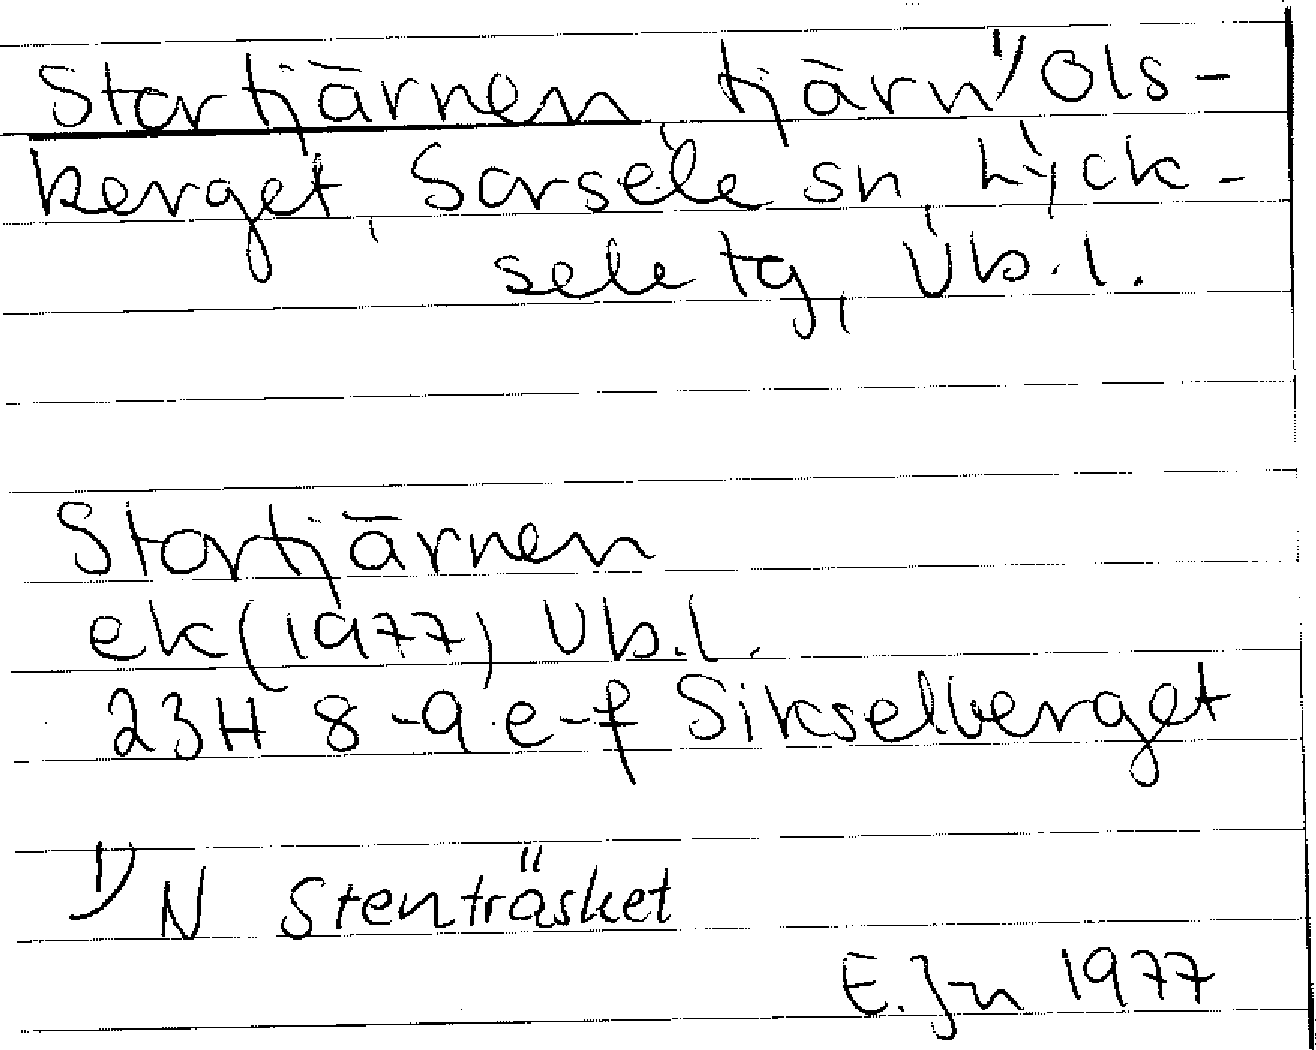 Stortjärnen tjärn 1) Ols-
berget, Sorsele sn, Lyck-
sele tg, Vb.l.
Stortjärnen
ek (1977) Vb.l.
23H 8-9 e-f Sikselberget
1) N Stenträsket
E. Jn 1977